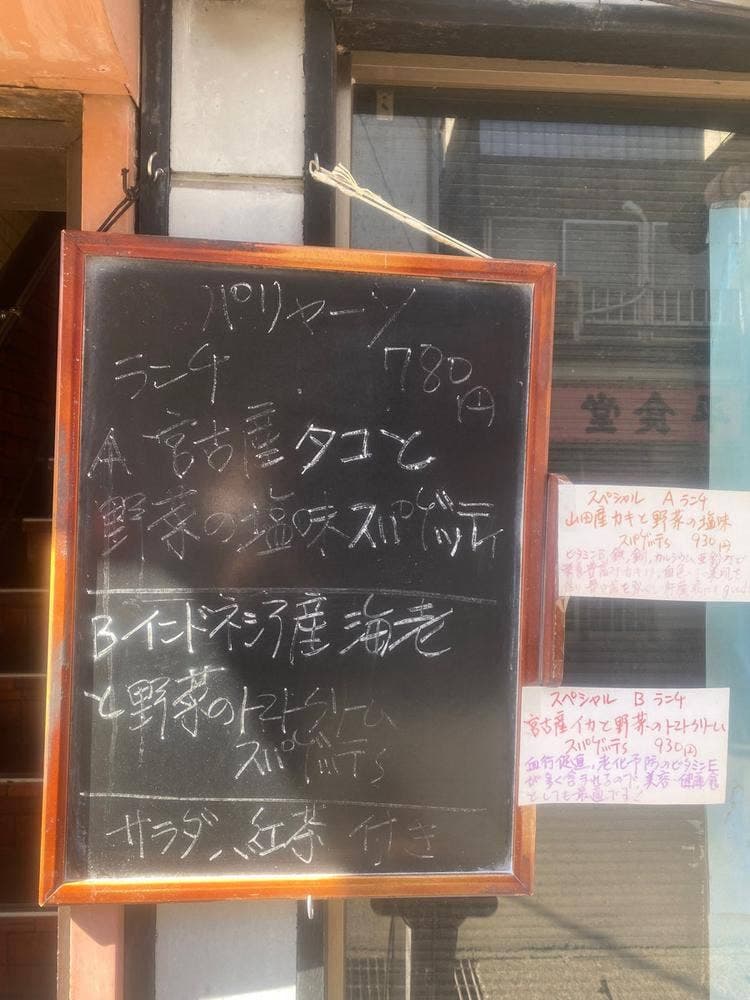 パリャーソ
ランチ 780円
A 宮古産タコと
野菜の塩味スパゲッティ
Bインドネシア産海老
と野菜のトマトクリーム
スパゲッティ
サラダ、紅茶 付き
スペシャル A ランチ
山田産カキと野菜の塩味
スパゲッティ 930円
スペシャル B ランチ
宮古産イカと野菜のトマトクリーム
スパゲッティ 930円
血行促進,老化予防のビタミンE
が多く含まれるので美容・健康食
としても最適です!
食堂